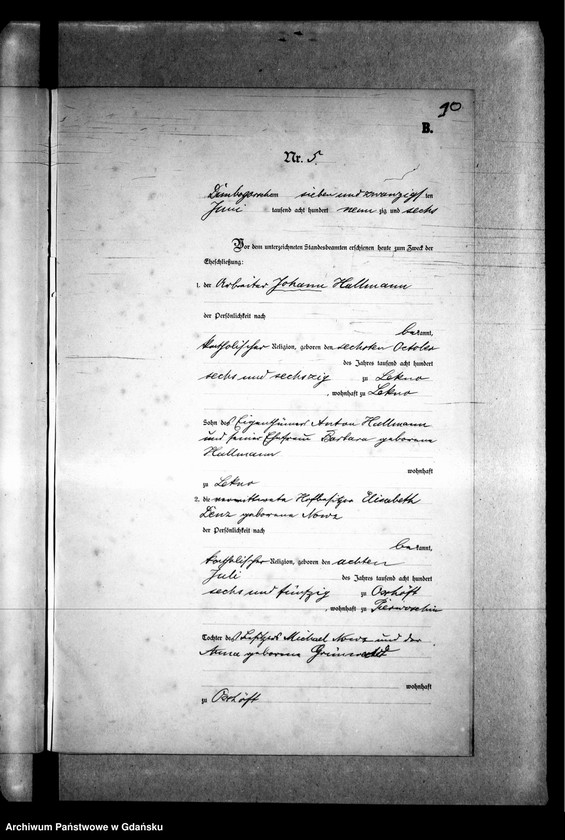 90
B.
Nr. 5.
Dembogorschem sieben und zwanzigs ten
Juni tausend acht hundert neun zig und sechs
Vor dem unterzeichneten Standesbeamten erschienen heute zum Zweck der
Eheschließung:
1. der Arbeiter Johann Hallmann
der Persönlichkeit nach
be kannt,
katholischer Religion, geboren den sechsten October
des Jahres tausend acht hundert
sechs und sechszig zu Lekno
, wohnhaft zu Lekno
Sohn des Eigenthümers Anton Hallmann
und seiner Ehefrau Barbara geborene
Hallmann
wohnhaft
zu Lekno
2. die verwittwete Hofbesitzer Elisabeth
Lenz geborene Nowe
der Persönlichkeit nach
be kannt,
katholischer Religion, geboren den achten
Juli des Jahres tausend acht hundert
sechs und fünfzig zu Oxhöft
, wohnhaft zu Pierwoschin
Tochter des Michael Nowe und der
Anna geborene
wohnhaft
zu Oxhöft
Archiwum Państwowe w Gdańsku